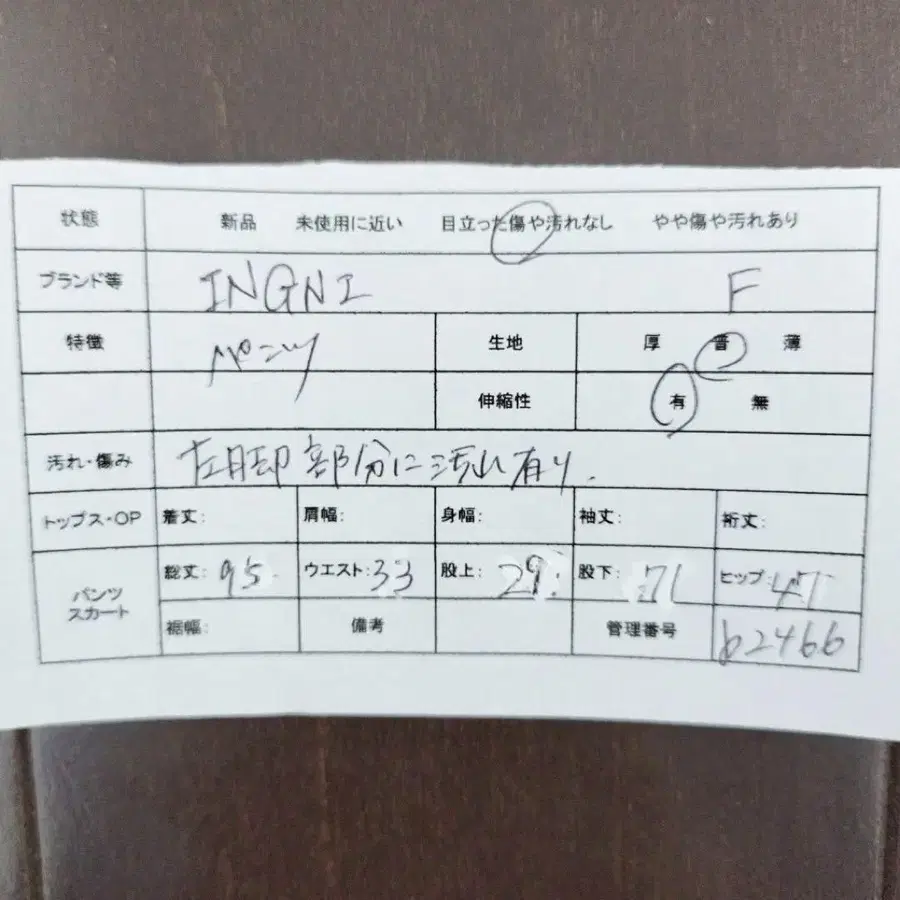 状態 新品 未使用に近い 目立った傷や汚れなし やや傷や汚れあり
ブランド等 INGNI F
特徴 パンツ 生地 厚 普 薄
伸縮性 有 無
汚れ・傷み 左脚部分に汚れ有り.
トップス・OP 着丈: 肩幅: 身幅: 袖丈: 裄丈:
パンツ スカート 総丈: 95 ウエスト: 33 股上: 29 股下: 71 ヒップ: 47
裾幅: 備考 管理番号 b2466